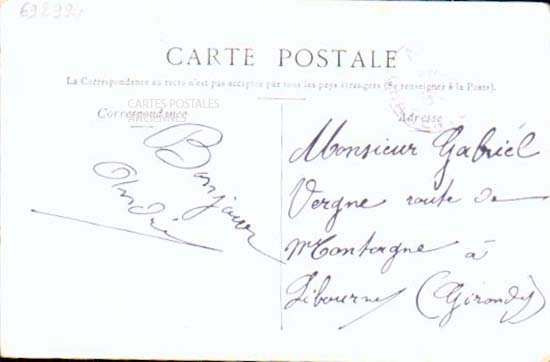 69299
CARTE POSTALE
La Correspondance au recto n'est pas acceptée par tous les pays étrangers (Se renseigner à la Poste).
CARTES POSTALES
ANCIENNES
Correspondance
Adresse
Bonjour
André
Monsieur Gabriel
Vergne route de
Montagne à
Libourne (Gironde)